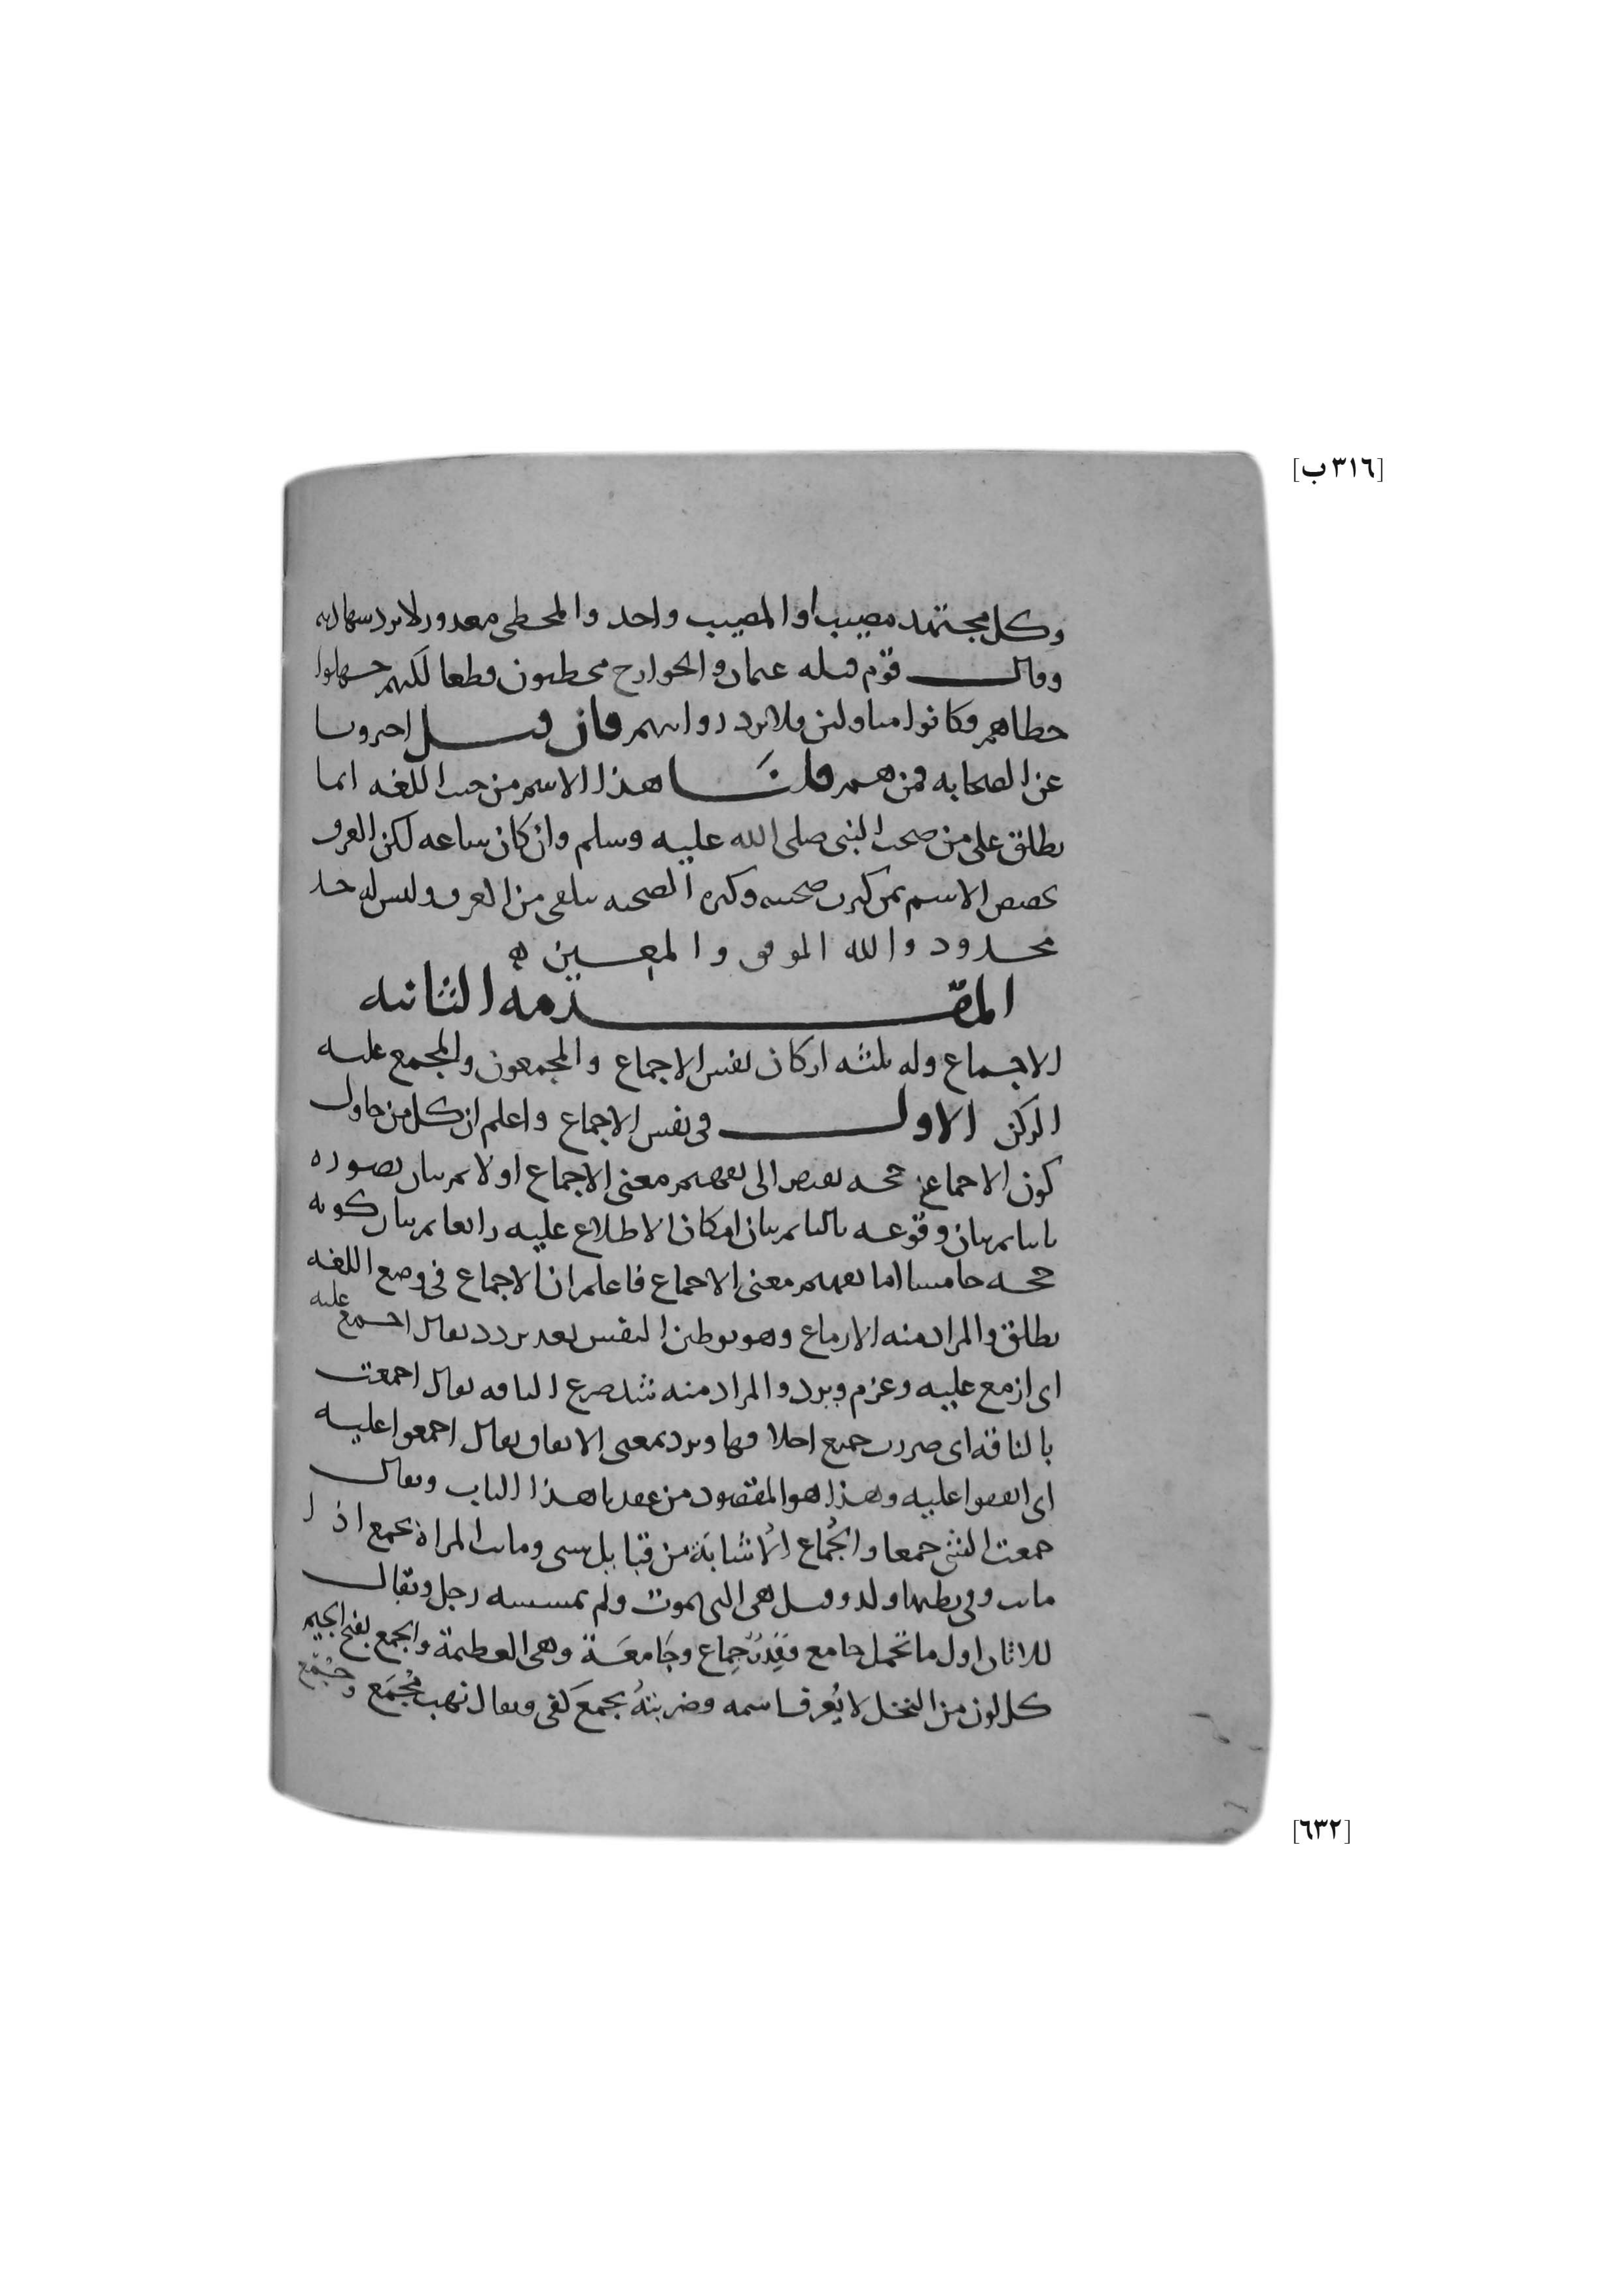 [٣١٦ ب]
وكل مجتهد مصيب او المصيب واحد والمخطى معذور لا ترد شهادته
وقال قوم قتله عثمان والخوارج مخطيون قطعا لكنهم جهلوا
خطاهم وكانوا متاولين فلا ترد روايتهم فان قيل اخبرونا
عن الصحابه فمن هم قلنا هذا الاسم من حيث اللغه انما
يطلق على من صحب النبي صلى الله عليه وسلم وان كان ساعه لكن العرف
يخصص الاسم بمن كثرت صحبته وكثره الصحبه يتلقى من العرف وليس له حد
محدود والله الموفق والمعين
المقدمه الثانيه
الاجماع وله ثلثه اركان نفس الاجماع والمجمعون والمجمع عليه
الركن الاول في نفس الاجماع واعلم ان كل من حاول
كون الاجماع حجه يفتقر الى تفهيم معنى الاجماع اولا ثم بيان تصوره
ثانيا ثم بيان وقوعه ثالثا ثم بيان امكان الاطلاع عليه رابعا ثم بيان كونه
حجه خامسا اما تفهيم معنى الاجماع فاعلم ان الاجماع في وضع اللغه
يطلق والمراد منه الازماع وهو توطين النفس بعد تردد يقال اجمع عليه
اى ازمع عليه وعزم ويرد والمراد منه شد ضرع الناقه يقال اجمعت
بالناقه اى صررت جميع اخلافها ويرد بمعنى الاتفاق يقال اجمعوا عليه
اى اتفقوا عليه وهذا هو المقصود من عقدنا هذا الباب ويقال
جمعت الشي جمعا والجُماع الاُشابَة من قبايل شتى وماتت المراة بجمع اذا
ماتت وفي بطنها ولد وقيل هي التى تموت ولم يمسسه رجل ويقال
للاتان اول ما تحمل جامع وقِدْرٌ جِماع وجَامعَة وهى العظيمة والجمع بفتح الجيم
كل لون من النخل لا يُعرف اسمه وضربتهُ بجمعَ كفى ويقال نهب مُجْمَع
[٦٣٢]